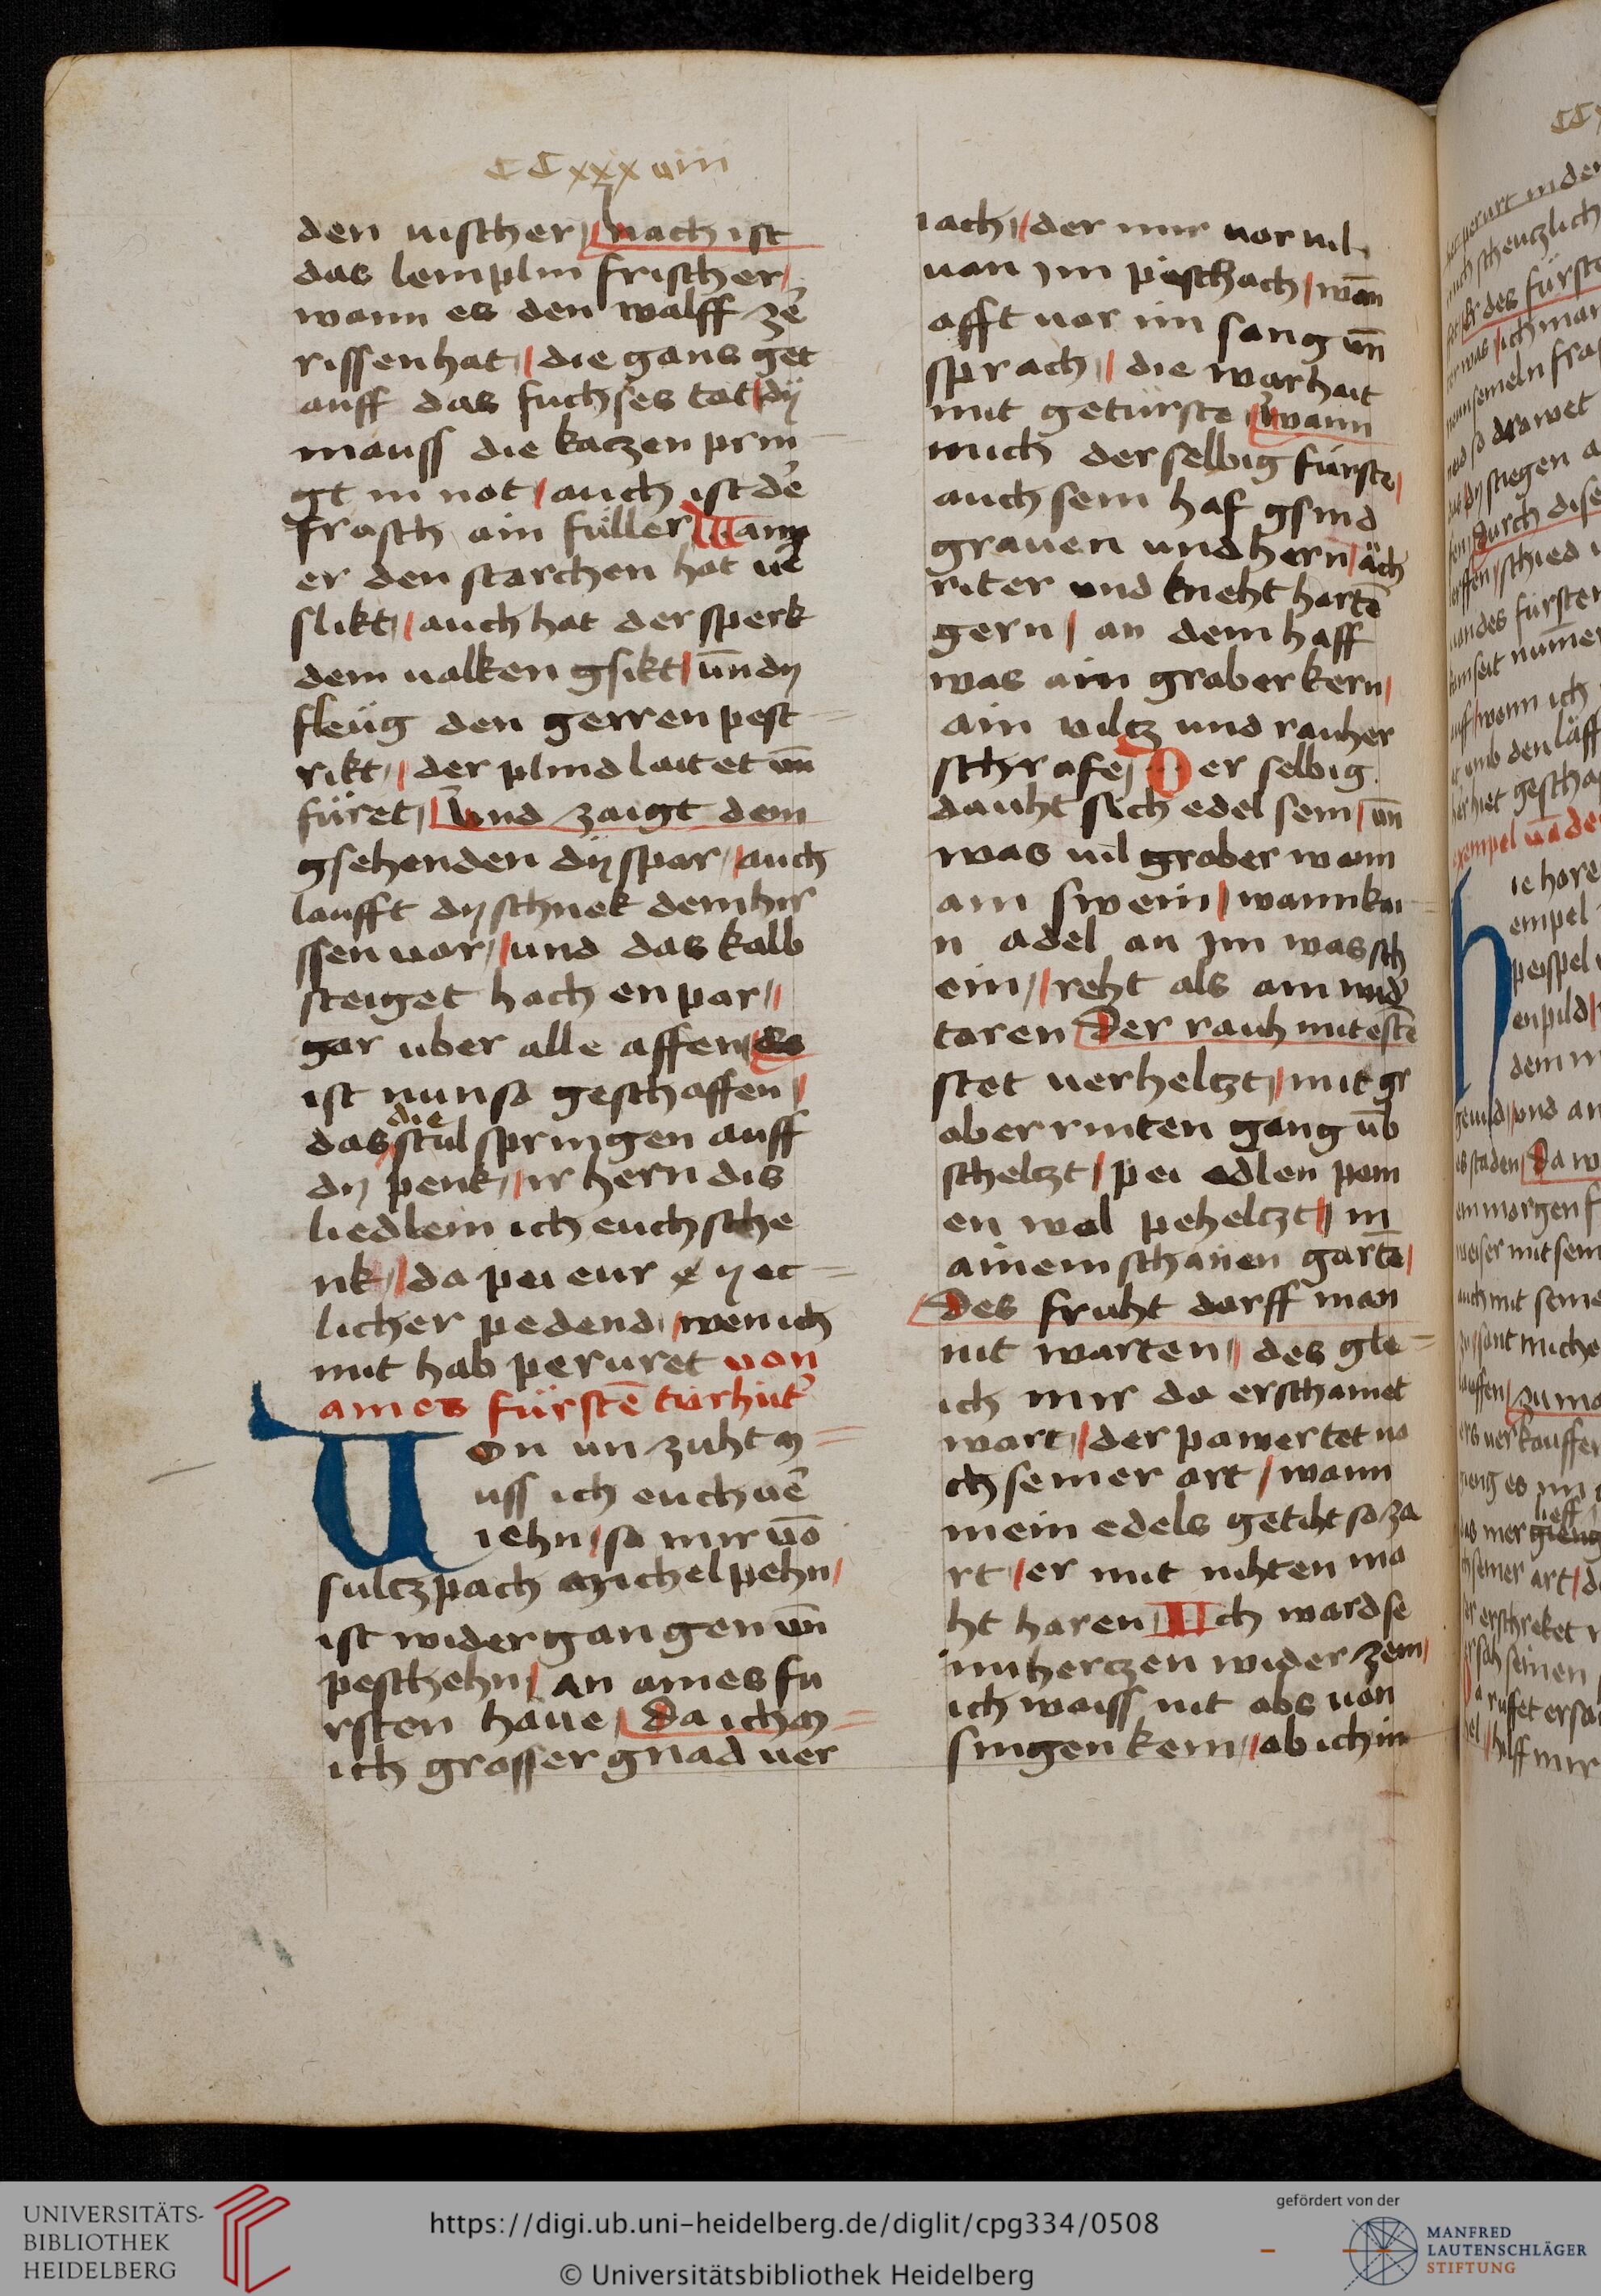 CCxxxviii
den vischer / nach ist
das lemplin frischer /
wann es den wolff zē
rissen hat / die gans get
auff das fuchses tot / dÿ
mauss die kaczen prin
gt in not / auch ist dē
frosch ain füller Wann
er den starchen hat vē
slikt / auch hat der sperk
dem valken gsikt / vnn dÿ
fleüg den gerren pest
rikt / der plind laitet vnn
füret / Vnd zaigt dem
gsehenden dÿ spor / auch
laufft dÿ schnek dem hir
ssen vor / und das kalb
steiget hoch enpor /
gar uber alle affen / Es
ist nun so geschaffen /
das die stül springen auff
dÿ penk / ir hern dis
liedlein ich euch sche
nk / da pei eur yec
licher pedend / wen ich
mit hab peruret von
aines fürstē türhüt
Uon un zuht m
uss ich euch vē
iehn / so mir vō
sultzpach michel pehn /
ist widergangen vnn
peschehn / an aines fü
rsten houe / da ich m
ich grosser gnad ver
iach / der mir vor vil
von im peschach / wann
offt vor im sang vnn
sprach / die warhait
mit getürste / Wann
mich derselbig fürste /
auch sein hof gsind
grauen und hern / ach
riter und kneht hortē
gern / an dem hoff
was ain grober kern /
ain viltz und rauher
schrofe / Der selbig
dauht sich edel sein / vnn
was vil grober wann
ain swein / wann kai
n adel an im was sch
ein / reht als ain wid
toren Der rauh mit estē
stet verheltzt / mit gr
ober rinten gang üb
scheltzt / pei edlen pom
en wol peheltzt / in
ainem schönen gartē /
des fruht dorff man
nit warten / des gle
ich mir do erschainet
wart / der pawer tet no
ch seiner art / wann
mein edels getiht so za
rt / er mit nihten mo
ht horen / Ich wards
in herczen wider zem /
ich waiss nit obs von
singen kem / ob ich im
https://digi.ub.uni-heidelberg.de/diglit/cpg334/0508
© Universitätsbibliothek Heidelberg
UNIVERSITÄTS-
BIBLIOTHEK
HEIDELBERG
gefördert von der
MANFRED
LAUTENSCHLÄGER
STIFTUNG